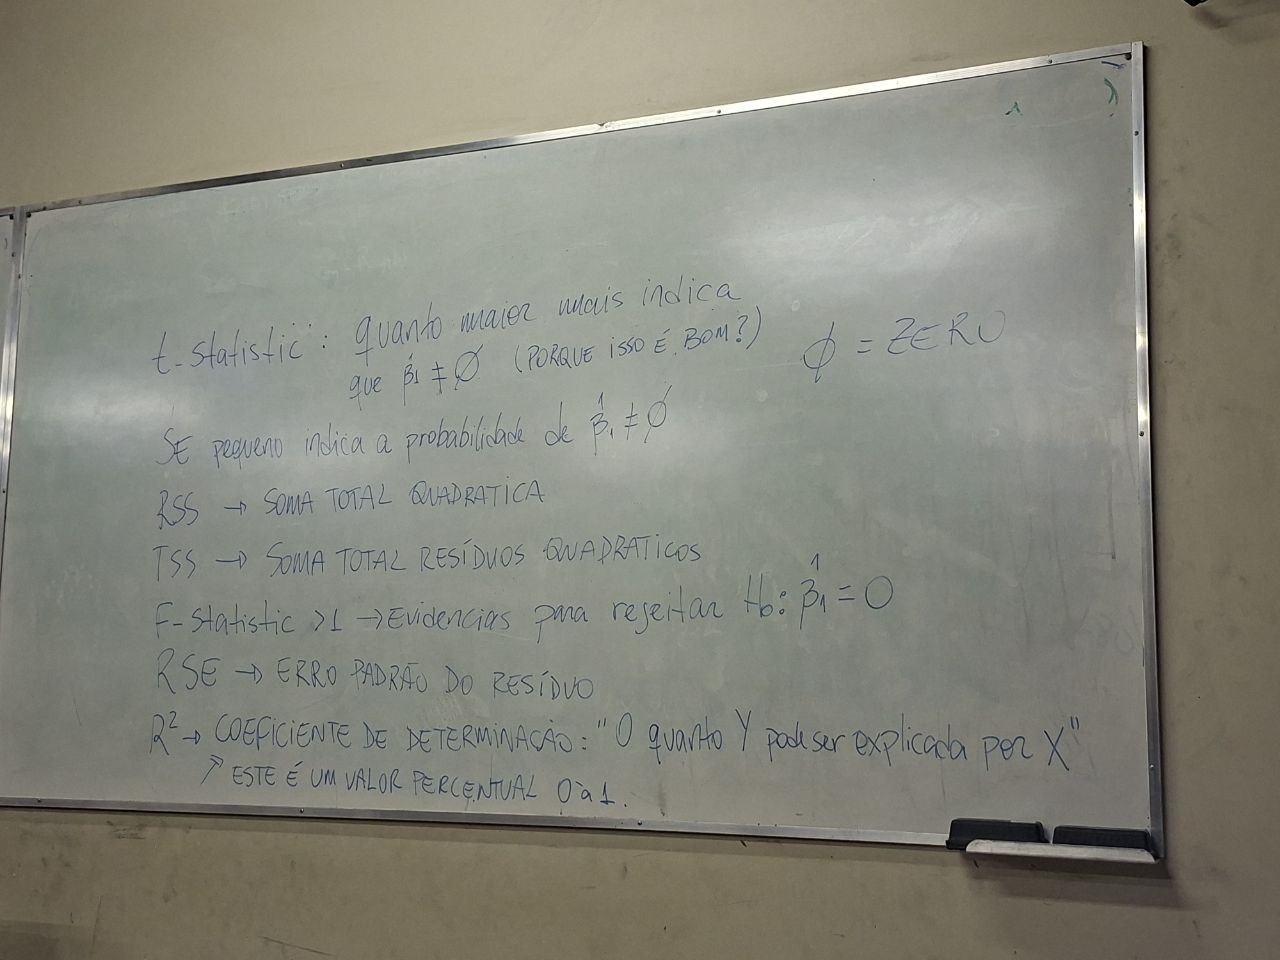 t-statistic: quanto maior mais indica
que β̂1 ≠ Ø (PORQUE ISSO É BOM?)
Ø = ZERO
SE pequeno indica a probabilidade de β̂1 ≠ Ø
RSS → SOMA TOTAL QUADRATICA
TSS → SOMA TOTAL RESÍDUOS QUADRATICOS
F-Statistic >1 → Evidencias para rejeitar Ho: β̂1 = 0
RSE → ERRO PADRÃO DO RESÍDUO
R² → COEFICIENTE DE DETERMINAÇÃO: "O quanto Y pode ser explicada por X"
↗ ESTE É UM VALOR PERCENTUAL 0 à 1.